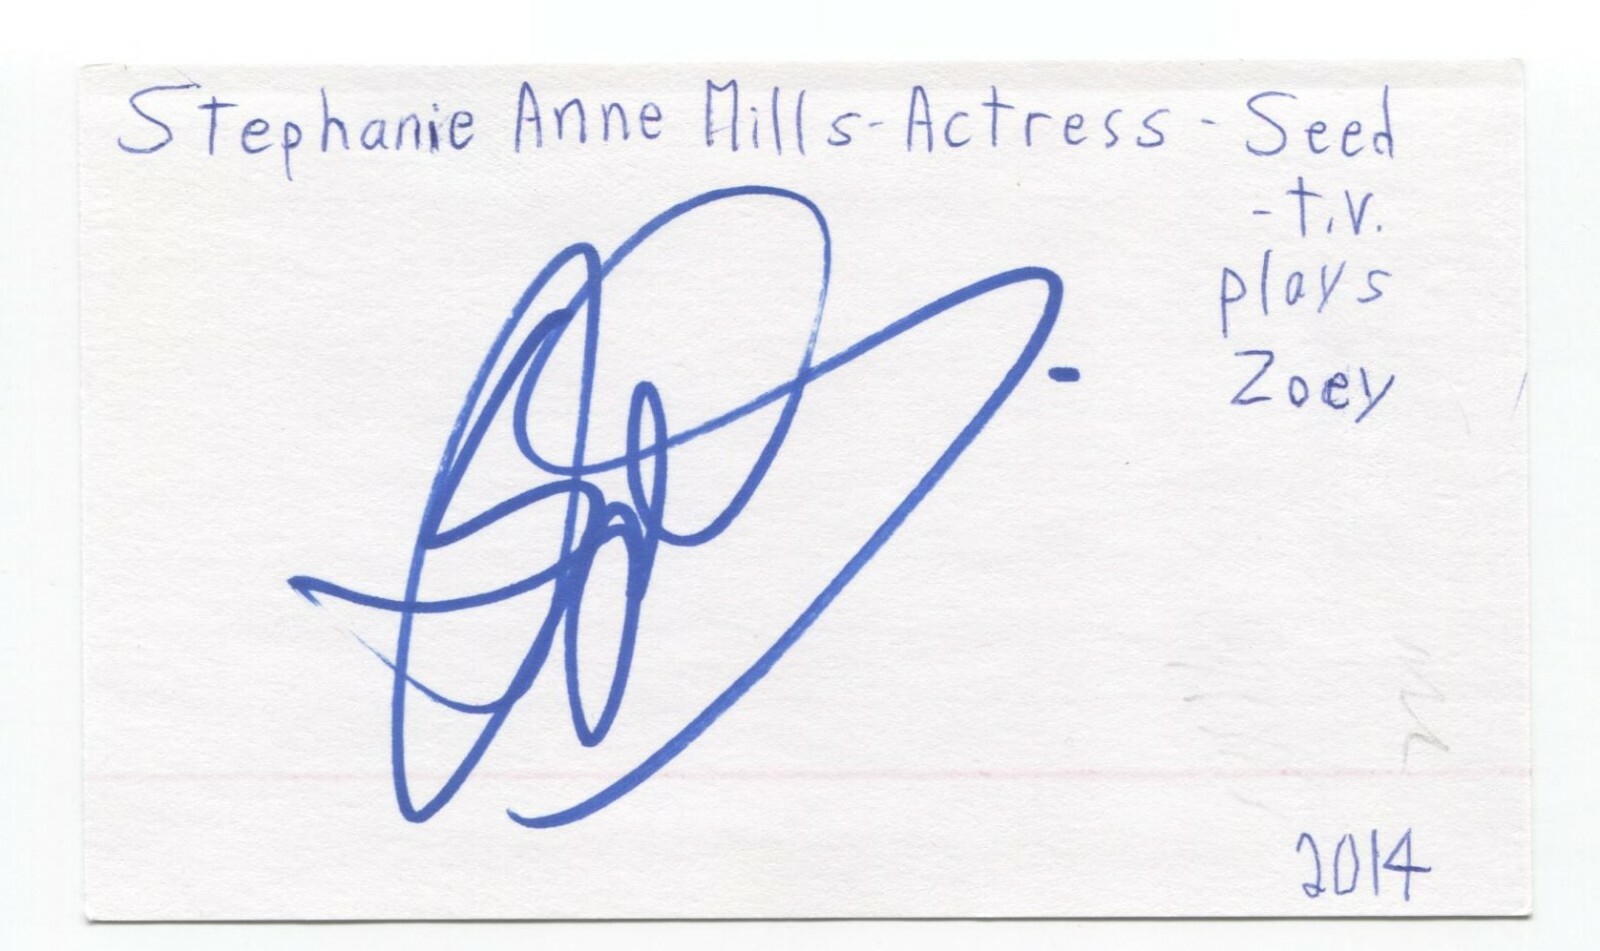 Stephanie Anne Mills - Actress - Seed
- T.V.
plays
Zoey
2014